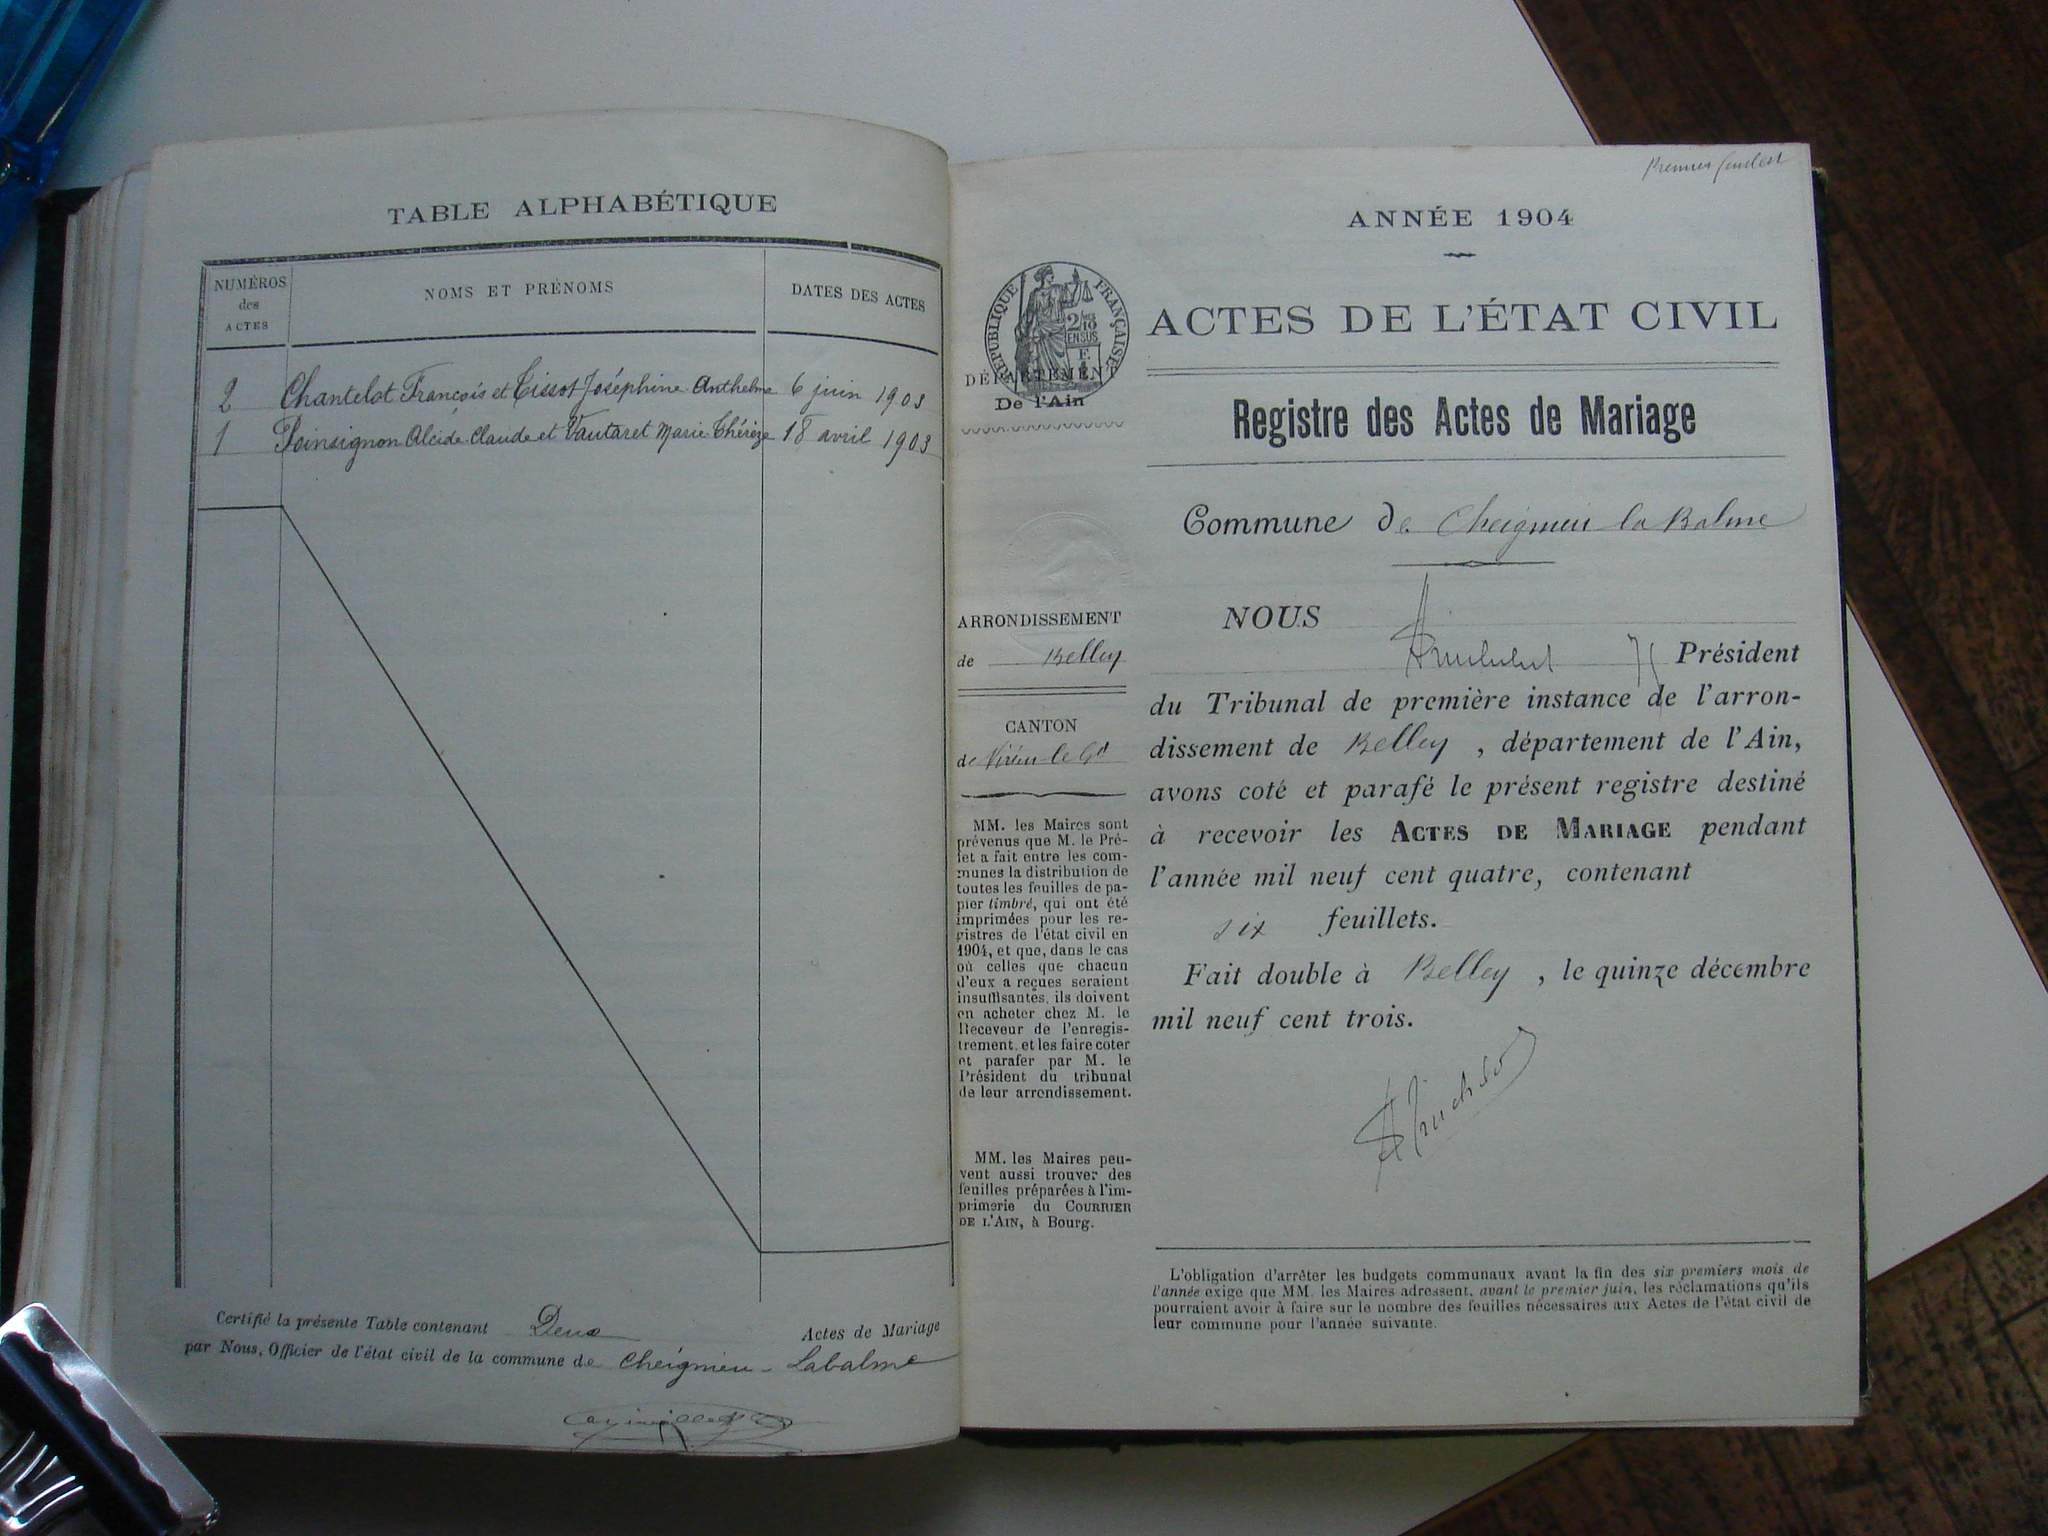 TABLE ALPHABÉTIQUE
NUMÉROS
des
ACTES
NOMS ET PRÉNOMS
DATES DES ACTES
2 Chantelot François et Tissot Joséphine Anthelme 6 juin 1903
1 Poinsignon Alcide Claude et Vautaret Marie Thérèze 18 avril 1903
Certifié la présente Table contenant Deux Actes de Mariage
par Nous, Officier de l'état civil de la commune de Cheignieu-Labalme
Premier feuillet
ANNÉE 1904
ACTES DE L'ÉTAT CIVIL
RÉPUBLIQUE FRANÇAISE
2/10
EN SUS
DÉPARTEMENT
De l'Ain
Registre des Actes de Mariage
Commune de Cheignieu la Balme
ARRONDISSEMENT
de Belley
CANTON
de Virieu-le-Gd
MM. les Maires sont
prévenus que M. le Pré-
fet a fait entre les com-
munes la distribution de
toutes les feuilles de pa-
pier timbré, qui ont été
imprimées pour les re-
gistres de l'état civil en
1904, et que, dans le cas
où celles que chacun
d'eux a reçues seraient
insuffisantes, ils doivent
en acheter chez M. le
Receveur de l'enregis-
trement, et les faire coter
et parafer par M. le
Président du tribunal
de leur arrondissement.
MM. les Maires peu-
vent aussi trouver des
feuilles préparées à l'im-
primerie du COURRIER
DE L'AIN, à Bourg.
NOUS
Président
du Tribunal de première instance de l'arron-
dissement de Belley, département de l'Ain,
avons coté et parafé le présent registre destiné
à recevoir les ACTES DE MARIAGE pendant
l'année mil neuf cent quatre, contenant
six feuillets.
Fait double à Belley, le quinze décembre
mil neuf cent trois.
L'obligation d'arrêter les budgets communaux avant la fin des six premiers mois de
l'année exige que MM. les Maires adressent, avant le premier juin, les réclamations qu'ils
pourraient avoir à faire sur le nombre des feuilles nécessaires aux Actes de l'état civil de
leur commune pour l'année suivante.